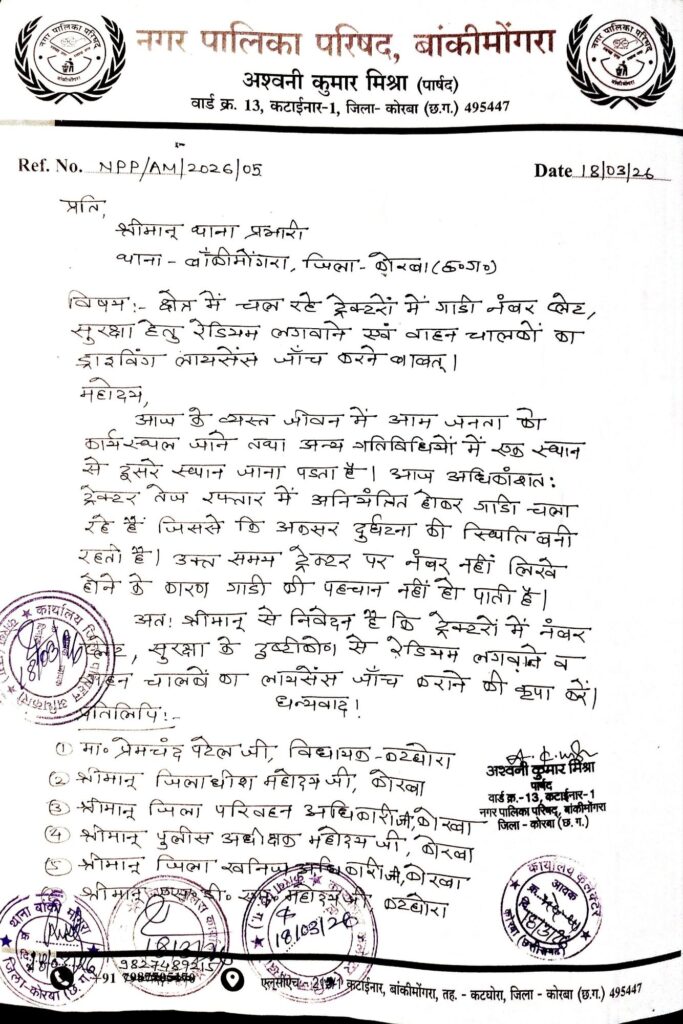 नगर पालिका परिषद, बांकीमोंगरा
अश्वनी कुमार मिश्रा (पार्षद)
वार्ड क्र. 13, कटाईनार-1, जिला- कोरबा (छ.ग.) 495447
Ref. No. NPP/AM/2026/05
Date 18/03/26
प्रति,
श्रीमान् थाना प्रभारी
थाना - बाँकीमोंगरा, जिला - कोरबा (छ०ग०)
विषय:- क्षेत्र में चल रहे ट्रेक्टरों में गाडी नंबर प्लेट,
सुरक्षा हेतु रेडियम लगवाने एवं वाहन चालकों का
ड्राइविंग लायसेंस जाँच करने बाबत् ।
महोदय,
आज के व्यस्त जीवन में आम जनता को
कार्यस्थल जाने तथा अन्य गतिविधियों में एक स्थान
से दूसरे स्थान जाना पडता है । आज अधिकांशत:
ट्रेक्टर तेज रफ्तार में अनियंत्रित होकर गाडी चला
रहे हैं जिससे कि अकसर दुर्घटना की स्थिति बनी
रहती है । उक्त समय ट्रेक्टर पर नंबर नहीं लिखे
होने के कारण गाडी की पहचान नहीं हो पाती है ।
अत: श्रीमान् से निवेदन है कि ट्रेक्टरों में नंबर
प्लेट, सुरक्षा के दृष्टीकोण से रेडियम लगवाने व
वाहन चालकों का लायसेंस जाँच कराने की कृपा करें ।
धन्यवाद !
प्रतिलिपि:-
① मा० प्रेमचंद पटेल जी, विधायक - कटघोरा
② श्रीमान् जिलाधीश महोदय जी, कोरबा
③ श्रीमान् जिला परिवहन अधिकारी जी, कोरबा
④ श्रीमान् पुलीस अधीक्षक महोदय जी, कोरबा
⑤ श्रीमान् जिला खनिज अधिकारी जी, कोरबा
श्रीमान् एस. डी. एम. महोदय जी कटघोरा
अश्वनी कुमार मिश्रा
पार्षद
वार्ड क्र.-13, कटाईनार-1
नगर पालिका परिषद्, बांकीमोंगरा
जिला - कोरबा (छ. ग.)
कार्यालय कलेक्टर
आवक
कोरबा (छत्तीसगढ़)
18/03/26
9827489215
+91
कटाईनार, बांकीमोंगरा, तह. - कटघोरा, जिला - कोरबा (छ.ग.) 495447